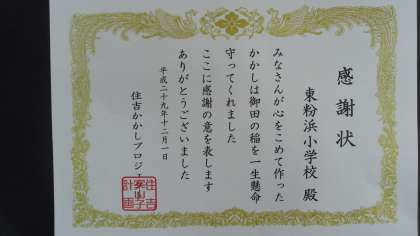 感謝状
東粉浜小学校 殿
みなさんが心をこめて作った
かかしは御田の稲を一生懸命
守ってくれました
ここに感謝の意を表します
ありがとうございました
平成二十九年十二月一日
住吉かかしプロジ
住吉
案山子
計画